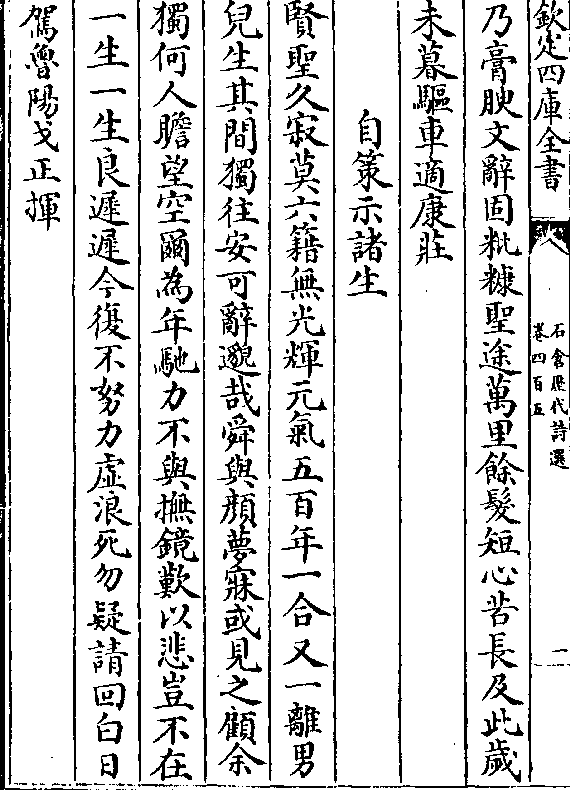 欽定四庫全書
石倉歴代詩選
卷四百五
一
乃膏腴文辭固粃糠聖途萬里餘髮短心苦長及此歲
未暮驅車適康莊
自策示諸生
賢聖久寂莫六籍無光輝元氣五百年一合又一離男
兒生其間獨往安可辭邈哉舜與顔夢寐或見之顧余
獨何人瞻望空爾為年馳力不與撫鏡歎以悲豈不在
一生一生良遲遲今復不努力虛浪死勿疑請回白日
駕魯陽戈正揮